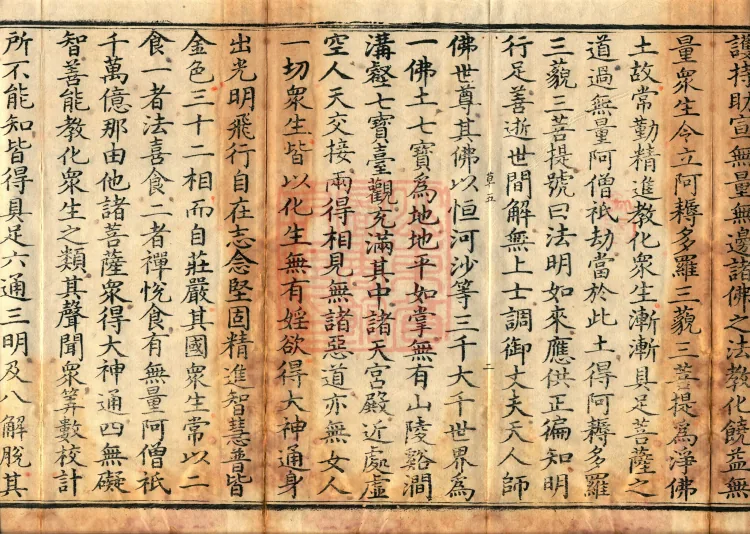 護持助宣無量無邊諸佛之法教化饒益無
量衆生令立阿耨多羅三藐三菩提爲淨佛
土故常勤精進教化衆生漸漸具足菩薩之
道過無量阿僧祇劫當於此土得阿耨多羅
三藐三菩提號曰法明如來應供正徧知明
行足善逝世間解無上士調御丈夫天人師
草五 二
佛世尊其佛以恒河沙等三千大千世界爲
一佛土七寶爲地地平如掌無有山陵谿澗
溝壑七寶臺觀充滿其中諸天宮殿近處虛
空人天交接兩得相見無諸惡道亦無女人
一切衆生皆以化生無有婬欲得大神通身
出光明飛行自在志念堅固精進智慧普皆
金色三十二相而自莊嚴其國衆生常以二
食一者法喜食二者禪悅食有無量阿僧祇
千萬億那由他諸菩薩衆得大神通四無礙
智善能教化衆生之類其聲聞衆筭數校計
所不能知皆得具足六通三明及八解脫其